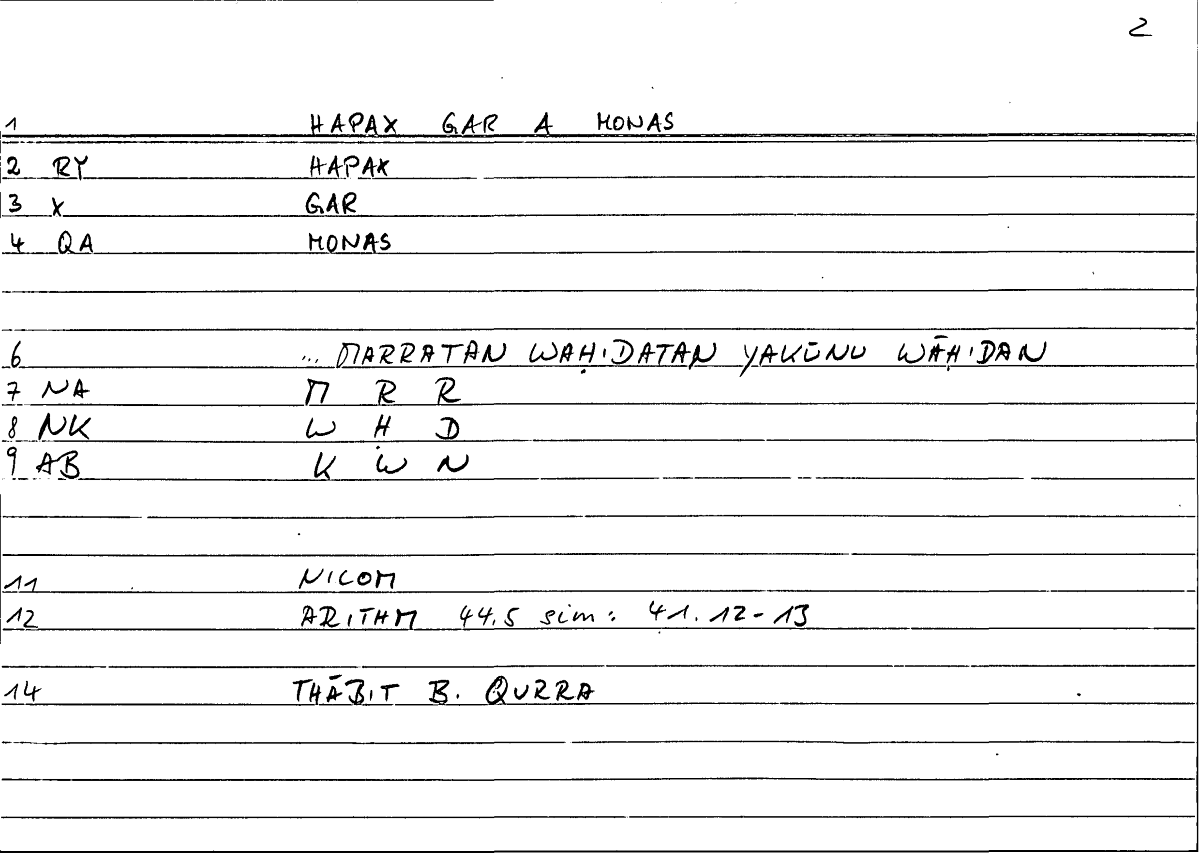 2
1 HAPAX GAR A MONAS
2 RY HAPAX
3 X GAR
4 QA MONAS
6 ... MARRATAN WAḤIDATAN YAKŪNU WĀḤIDAN
7 NA M R R
8 NK W Ḥ D
9 AB K W N
11 NICOM
12 ARITHM 44.5 sim: 41.12-13
14 THĀBIT B. QURRA